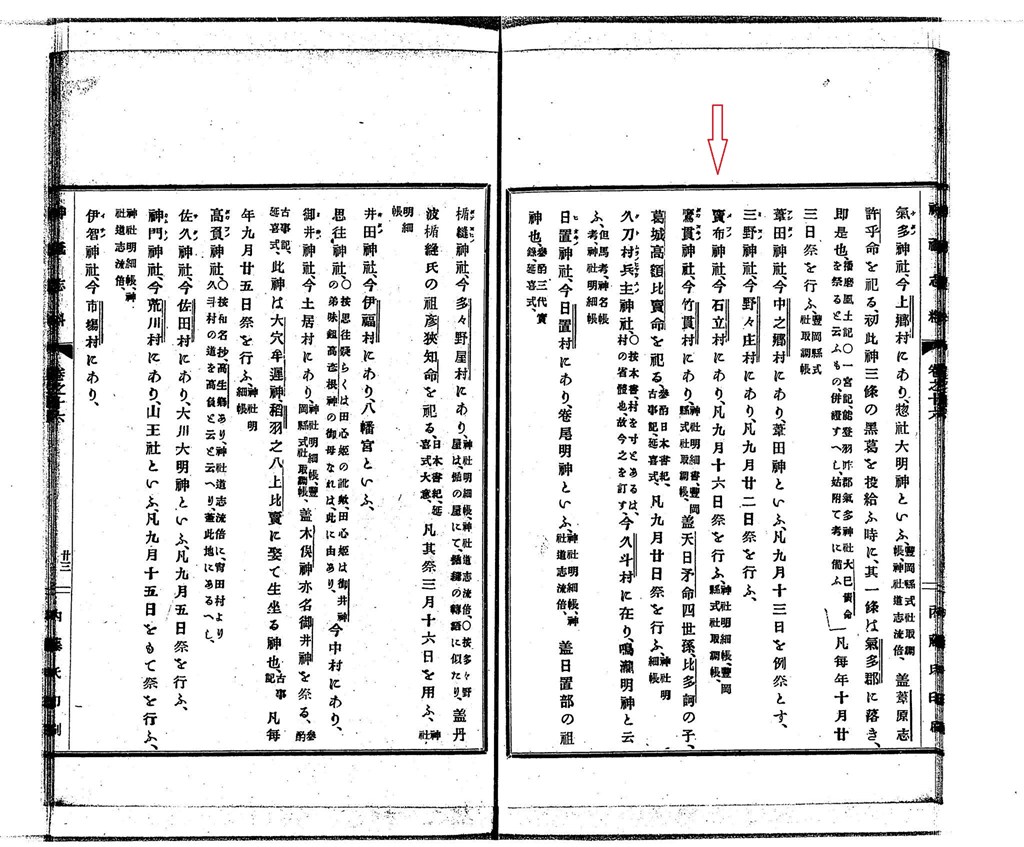 氣多神社、今上郷村にあり、惣社大明神といふ、豐岡縣式社取調帳、神社道志流倍、蓋葦原志
許乎命を祀る、初此神三條の黑葛を投給ふ時に、其一條は氣多郡に落き、
即是也、播磨風土記〇一宮記能登羽咋郡氣多神社大己貴命を祭ると云ふもの、併證すへし、姑附て考に備ふ 凡毎年十月廿
三日祭を行ふ、豐岡縣式社取調帳
葦田神社、今中之郷村にあり、葦田神といふ、凡九月十三日を例祭とす、
三野神社、今野々庄村にあり、凡九月廿二日祭を行ふ、
賣布神社、今石立村にあり、凡九月十六日祭を行ふ、神社明細帳、豐岡縣式社取調帳、
鷹貫神社、今竹貫村にあり、神社明細書、豐岡縣式社取調帳、蓋天日矛命四世孫、比多訶の子、
葛城高額比賣命を祀る、參酌日本書紀、古事記、延喜式、凡九月廿日祭を行ふ、神社明細帳
久刀村兵主神社、〇按本書村を寸とあるは、村の省體也、故今之を訂す、今久斗村に在り、鳴瀧明神と云
ふ、但馬考、神名考、神社明細帳
日置神社、今日置村にあり、卷尾明神といふ、神社明細帳、神社道志流倍、蓋日置部の祖
神也、參酌三代實錄、延喜式、
楯縫神社、今多々野屋村にあり、神社明細帳、神社道志流倍〇按多々野屋は、楯の屋にて、楯縫の轉語に似たり、蓋丹
波楯縫氏の祖彦狹知命を祀る、日本書紀、延喜式大意、凡其祭三月十六日を用ふ、神社
明細帳
井田神社、今伊福村にあり、八幡宮といふ、
思往神社、〇按思往袋らくは田心姬の訛歟、田心姬は御井神の弟味鉏高彦根神の御母なれは、此に由あり、今中村にあり、
御井神社、今土居村にあり、神社明細帳、豐岡縣式社取調帳、蓋木俣神亦名御井神を祭る、參酌
古事記、延喜式、此神は大穴牟遲神、稻羽之八上比賣に娶て生坐る神也、古事記 凡毎
年九月廿五日祭を行ふ、神社明細帳
高負神社、〇按和名抄、高生郷あり、神社道志流倍に、宵田村より久斗村の道を高負と云と云へり、蓋此地にあるへし、
佐久神社、今佐田村にあり、大川大明神といふ、凡九月五日祭を行ふ、
神門神社、今荒川村にあり、山王社といふ、凡九月十五日をもて祭を行ふ、
神社明細帳、神社道志流倍、
伊智神社、今市塲村にあり、
神祇志料
卷之十六
廿三